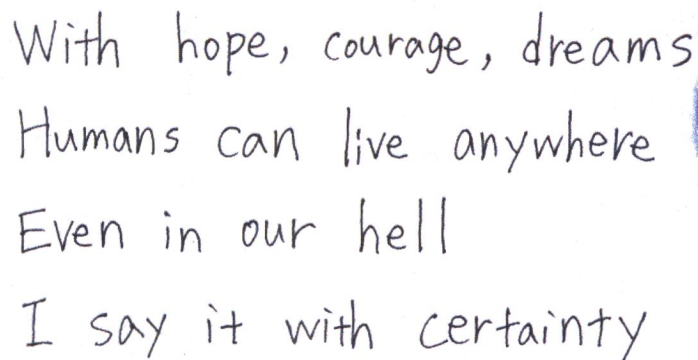 With hope, courage, dreams
Humans can live anywhere
Even in our hell
I say it with certainty